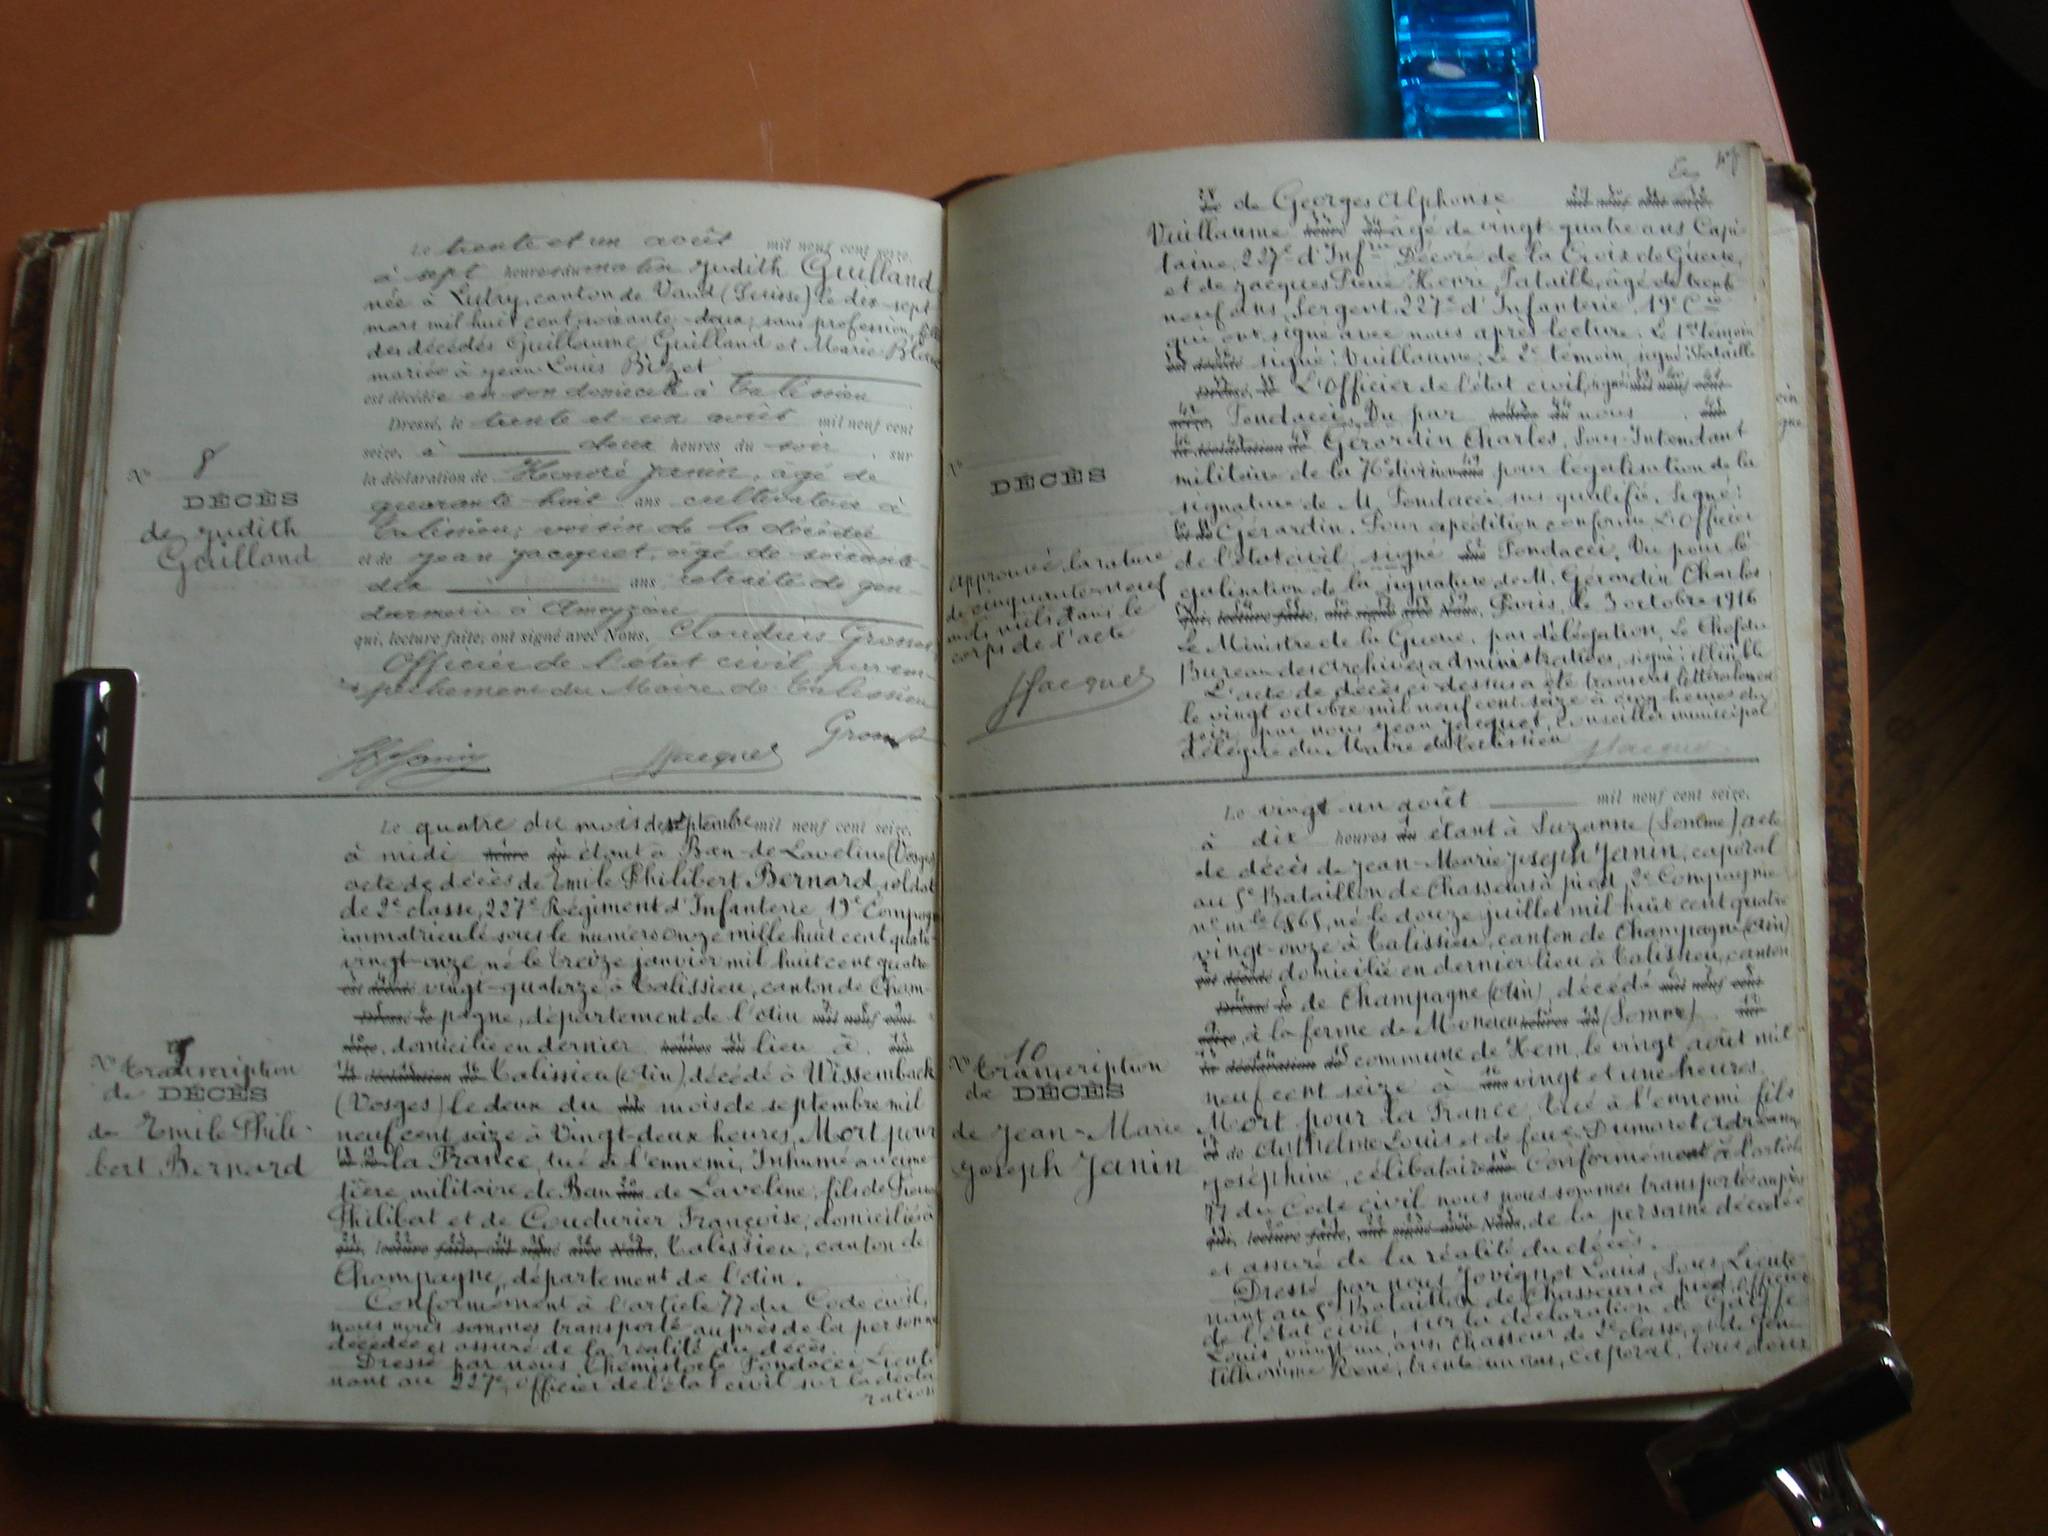 Le trente et un août mil neuf cent seize,
à sept heures du matin Judith Guilland
née à Lutry, canton de Vaud (Suisse) le dix-sept
mars mil huit cent soixante-deux, sans profession, fille
des décédés Guillaume Guilland et Marie Blanc
mariée à Jean Louis Bizet
est décédée en son domicile à Talissieu
Dressé, le trente et un août mil neuf cent
seize, à deux heures du soir, sur
la déclaration de Honoré Janin, âgé de
quarante huit ans cultivateur à
Talissieu, voisin de la décédée
et de Jean Jacquet, âgé de soixante-
dix ans retraité de gen-
darmerie à Ameyzieu
qui, lecture faite, ont signé avec Nous, Claudius Grosset
Officier de l'état civil, par em-
pêchement du Maire de Talissieu
No 8
DÉCÈS
de Judith
Guilland
H Janin JJacquet
Le quatre du mois de septembre mil neuf cent seize,
à midi heure du étant à Ban-de-Laveline (Vosges)
acte de décès de Emile Philibert Bernard, soldat
de 2e classe, 227e Régiment d'Infanterie, 19e Compagnie
immatriculé sous le numéro onze mille huit cent quatre
vingt-onze, né le treize janvier mil huit cent quatre
est décédé vingt-quatorze à Talissieu, canton de Cham-
Dressé, le pagne, département de l'Ain mil neuf cent
seize, domicilié en dernier heures du lieu à sur
la déclaration de Talissieu (Ain), décédé à Wissemback
(Vosges) le deux du ans mois de septembre mil
neuf cent seize à Vingt-deux heures, Mort pour
et de la France, tué à l'ennemi, Inhumé au cime-
tière militaire de Ban ans de Laveline, fils de Pierre
Philibert et de Coudurier Françoise, domiciliés à
qui, lecture faite, ont signé avec Nous, Talissieu, canton de
Champagne, département de l'Ain.
Conformément à l'article 77 du Code civil,
nous nous sommes transporté auprès de la personne
décédée et assuré de la réalité du décès.
Dressé par nous Thémistocle Fondacci Lieute
nant au 227e, officier de l'état civil sur la décla
ration
No 9
Transcription
de DÉCÈS
de Emile Phili-
bert Bernard
de Georges Alphonse
Vuillaume heures du âgé de vingt quatre ans Capi-
taine, 227e d'Infrie Décoré de la Croix de Guerre,
et de Jacques Pierre Henri Pataille, âgé de trente
neuf ans, Sergent 227e d'Infanterie, 19e Cie
qui ont signé avec nous après lecture. Le 1er témoin
est décédé signé: Vuillaume, Le 2e témoin, signé: Pataille
Dressé, le L'Officier de l'état civil, signé: mil neuf cent
seize, Fondacci, Vu par heures du nous sur
la déclaration de Gérardin Charles, Sous-Intendant
militaire de la 76e division ans pour légalisation de la
signature de M. Fondacci, sus qualifié. Signé:
et de Gérardin. Pour expédition conforme L'Officier
de l'état civil signé ans Fondacci. Vu pour lé
galisation de la signature de M. Gérardin Charles
qui, lecture faite, ont signé avec Nous, Paris, le 3 octobre 1916
Le Ministre de la Guerre, par délégation, Le Chef du
Bureau des Archives administratives, signé: illisible
L'acte de décès ci-dessus a été transcrit littéralement
le vingt octobre mil neuf cent seize à cinq heures du
soir, par nous Jean Jacquet, conseiller municipal
délégué du Maire de Talissieu JJacquet
No
DÉCÈS
Approuvé la rature
de cinquante neuf
mots nuls dans le
corps de l'acte
JJacquet
Le vingt un août mil neuf cent seize,
à dix heures du étant à Suzanne (Somme) acte
de décès de Jean-Marie Joseph Janin, caporal
au 5e Bataillon de Chasseurs à pied, 2e Compagnie
no mle 6865, né le douze juillet mil huit cent quatre
vingt-onze à Talissieu, canton de Champagne (Ain)
est décédé domicilié en dernier lieu à Talissieu, canton
Dressé, le de Champagne (Ain), décédé mil neuf cent
seize, à la ferme de Monacu heures du (Somme) sur
la déclaration de commune de Hem, le vingt août mil
neuf cent seize à ans vingt et une heures.
Mort pour la France, tué à l'ennemi fils
et de de Anthelme Louis et de feue Dumarest Adrienne
Joséphine, célibataire ans Conformément à l'article
77 du Code civil nous nous sommes transporté auprès
qui, lecture faite, ont signé avec Nous, de la personne décédée
et assuré de la réalité du décès.
Dressé par nous Jovignot Louis, Sous Lieute-
nant au 5e Bataillon de Chasseurs à pied, officier
de l'état civil, sur la déclaration de
Louis, vingt un ans, Chasseur de 2e classe, et de Gen-
tilhomme René, trente un ans, caporal, tous deux
No 10
Transcription
de DÉCÈS
de Jean-Marie
Joseph Janin